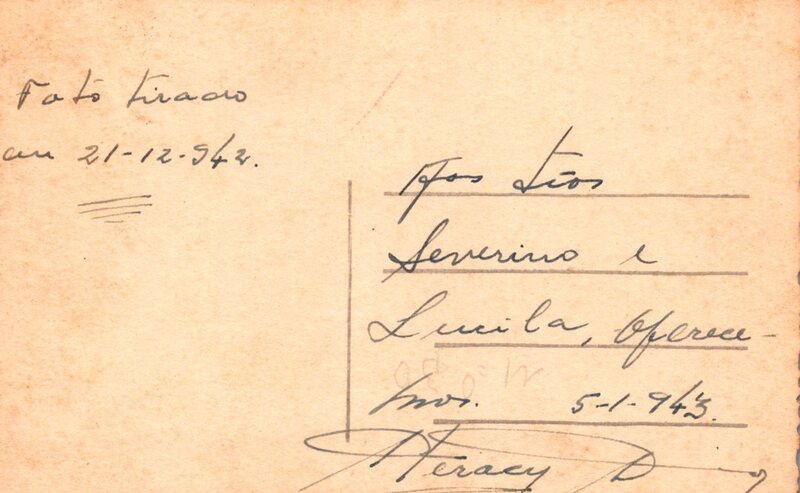 Foto tirado
em 21-12-942.
Aos Tios
Severino e
Lucila, oferece-
mos. 5-1-943.
Heracy D